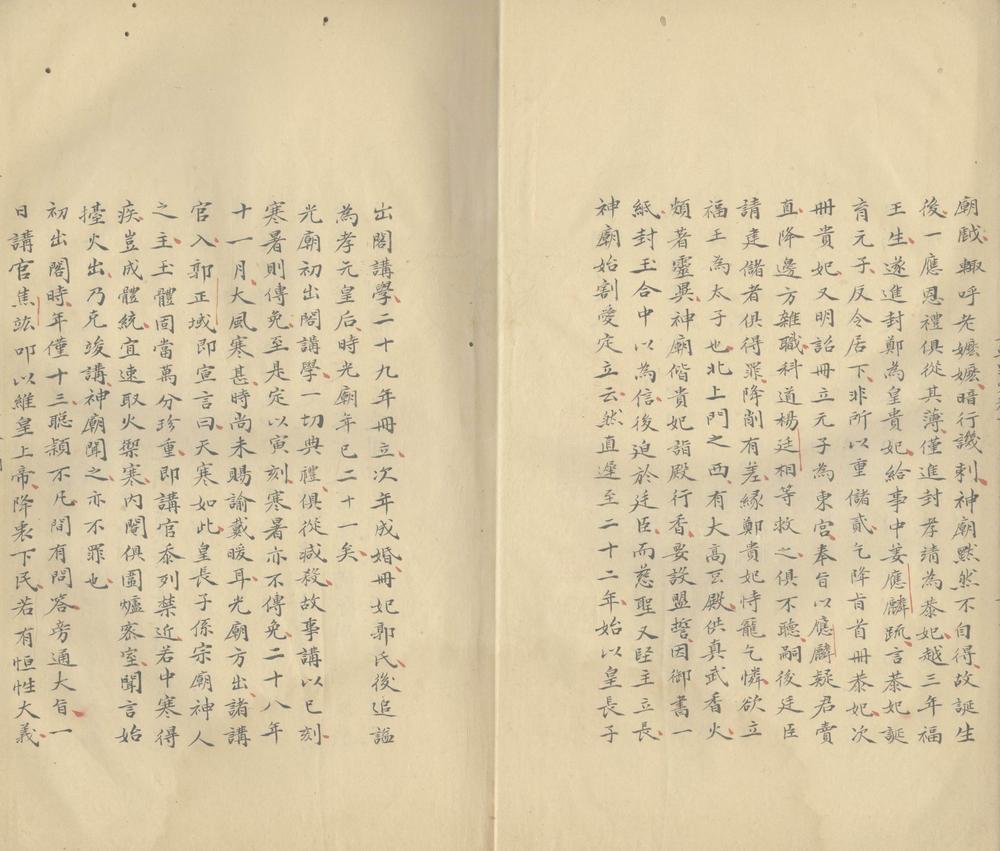 廟戲輒呼老嬤嬤暗行譏刺神廟默然不自得故誕生
後一應恩禮俱從其薄僅進封孝靖為恭妃越三年福
王生遂進封鄭為皇貴妃給事中姜應麟疏言恭妃誕
育元子反令居下非所以重儲貳乞降旨首冊恭妃次
冊貴妃又明詔冊立元子為東宮奉旨以應麟疑君賣
直降邊方雜職科道楊廷相等救之俱不聽嗣後廷臣
請建儲者俱得罪降削有差緣鄭貴妃恃寵乞憐欲立
福王為太子也北上門之西有大高玄殿供真武香火
頗著靈異神廟偕貴妃詣殿行香要設盟誓因御書一
紙封玉合中以為信後迫於廷臣而慈聖又堅主立長
神廟始割愛定立云然直遲至二十二年始以皇長子
出閣講學二十九年冊立次年成婚冊妃郭氏後追謚
為孝元皇后時光廟年已二十一矣
光廟初出閣講學一切典禮俱從減殺故事講以巳刻
寒暑則傳免至是定以寅刻寒暑亦不傳免二十八年
十一月大風寒甚時尚未賜諭戴暖耳光廟方出諸講
官入郭正域即宣言曰天寒如此皇長子係宗廟神人
之主玉體固當萬分珍重即講官忝列禁近若中寒得
疾豈成體統宜速取火禦寒內閹俱圍爐密室聞言始
擡火出乃克竣講神廟聞之亦不罪也
初出閣時年僅十三聰穎不凡間有問答旁通大旨一
日講官焦竑叩以維皇上帝降衷下民若有恒性大義